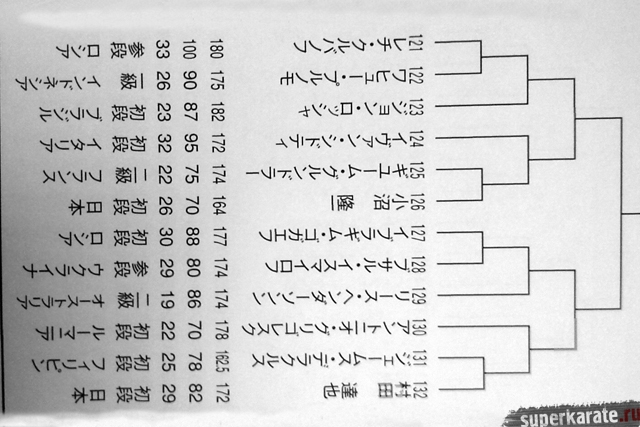 121 レチ・クルバノフ 180 100 33 参段 ロシア
122 ワヒュー・プルノモ 175 90 26 一級 インドネシア
123 ジョン・ロッシャ 182 87 23 初段 ブラジル
124 イヴァン・シドティ 172 95 32 初段 イタリア
125 ギューム・グルンドラー 174 75 22 二級 フランス
126 小沼 隆一 164 70 26 初段 日本
127 イブラギム・ゴガエフ 177 88 30 初段 ロシア
128 アサル・イスマイロフ 174 80 29 参段 ウクライナ
129 リース・ヘンダーソン 174 86 19 二級 オーストラリア
130 アントニオ・グリゴレスク 178 70 22 初段 ルーマニア
131 ジェームス・デラクルス 162.5 78 25 初段 フィリピン
132 村田 達也 172 82 29 初段 日本
superkarate.ru